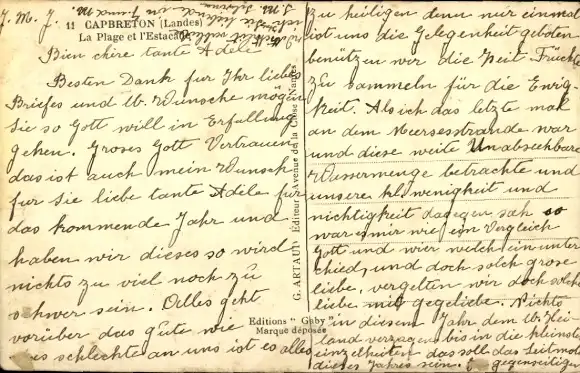 J. M. J.
11 CAPBRETON (Landes)
La Plage et l'Estacade
Bien chire tante Adele
Besten Dank fur Ihr liebes
Briefes und W. Wunsche mögen
Sie so Gott will in Erfullung
gehen. Groses Gott Vertrauen
das ist auch mein Wunsch
fur Sie liebe tante Adele für
das kommende Jahr und
haben wir dieses so wird
nichts zu viel noch zu
schwer sein. Alles geht
vorüber das gute wie
es schlechte an uns ist es alles
G. ARTAUD Éditeur Avenue de la Close Nantes
Editions "Gaby"
Marque déposée
zu heiligen denn nur einmal
ist uns die Gelegenheit geboten
benützen wir die Zeit Früchte
zu sammeln für die Ewig-
keit. Als ich das letzte mal
an dem Meeresstrande war
und diese weite Unabsehbare
Wassermenge betrachte und
unsere kl. wenigkeit und
nichtigkeit dagegen sah so
war es mir wie im Vergleich
Gott und wir welch ein unter
schied, und doch solch grose
liebe, vergelten wir doch solche
liebe mit gegeliebe. Nichts
in diesem Jahr dem W. Hei-
land versagen bis in die kleinsten
einzelheiten das soll das Leitmotiv
dieses Jahres sein. gegenseitigen